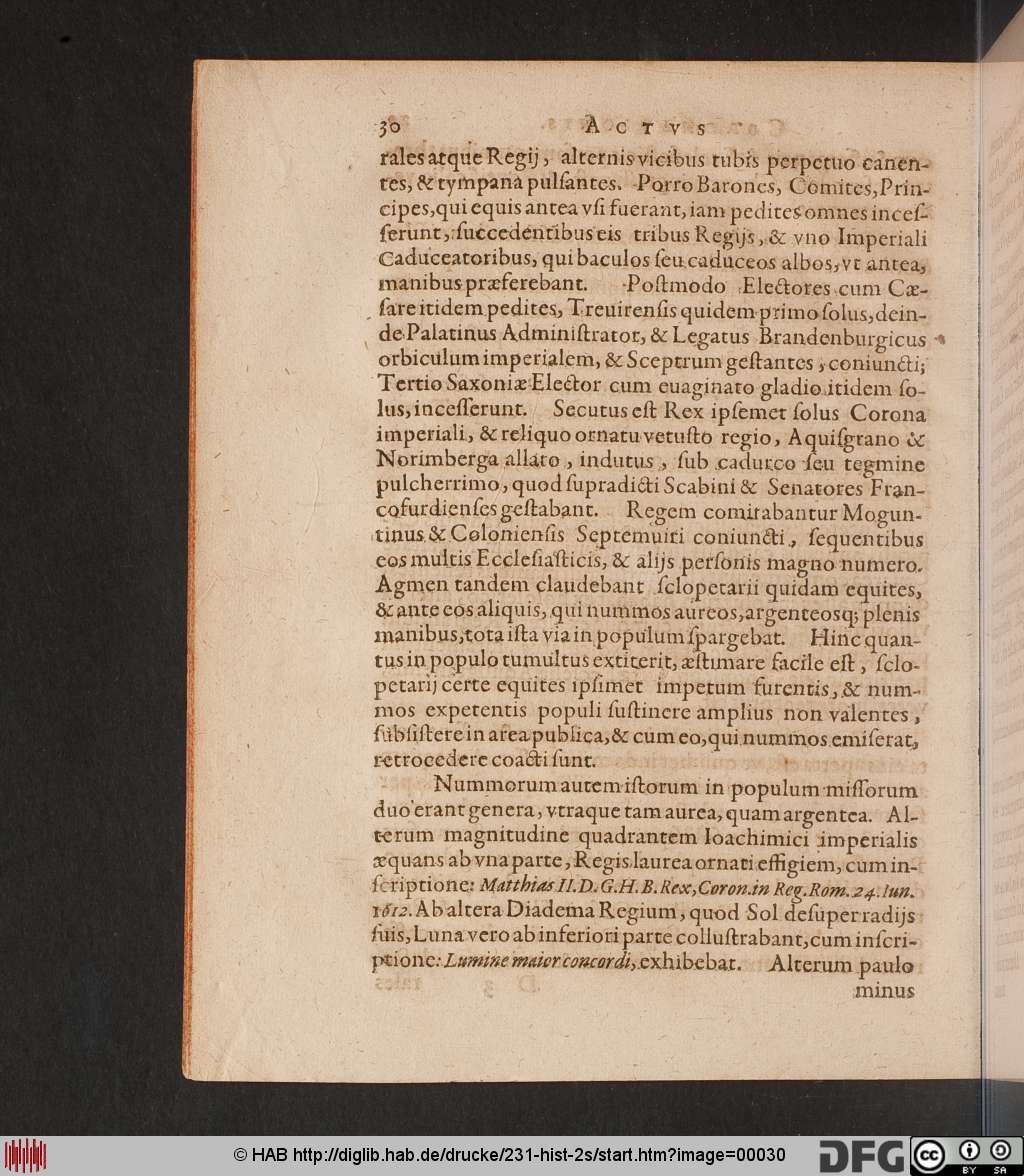 30 ACTVS
rales atque Regij, alternis vicibus tubis perpetuo canen-
tes, & tympana pulſantes. Porro Barones, Comites, Prin-
cipes, qui equis antea vſi fuerant, iam pedites omnes inceſ-
ſerunt, ſuccedentibus eis tribus Regijs, & vno Imperiali
Caduceatoribus, qui baculos ſeu caduceos albos, vt antea,
manibus præferebant. Poſtmodo Electores cum Cæ-
ſare itidem pedites, Treuirenſis quidem primo ſolus, dein-
de Palatinus Adminiſtrator, & Legatus Brandenburgicus
orbiculum imperialem, & Sceptrum geſtantes, coniuncti;
Tertio Saxoniæ Elector cum euaginato gladio itidem ſo-
lus, inceſſerunt. Secutus eſt Rex ipſemet ſolus Corona
imperiali, & reliquo ornatu vetuſto regio, Aquiſgrano &
Norimberga allato, indutus, ſub cadurco ſeu tegmine
pulcherrimo, quod ſupradicti Scabini & Senatores Fran-
cofurdienſes geſtabant. Regem comitabantur Mogun-
tinus & Colonienſis Septemuiri coniuncti, ſequentibus
eos multis Eccleſiaſticis, & alijs perſonis magno numero.
Agmen tandem claudebant ſclopetarii quidam equites,
& ante eos aliquis, qui nummos aureos, argenteosq; plenis
manibus, tota iſta via in populum ſpargebat. Hinc quan-
tus in populo tumultus extiterit, æſtimare facile eſt, ſclo-
petarij certe equites ipſimet impetum furentis, & num-
mos expetentis populi ſuſtinere amplius non valentes,
ſubſiſtere in area publica, & cum eo, qui nummos emiſerat,
retrocedere coacti ſunt.
Nummorum autem iſtorum in populum miſſorum
duo erant genera, vtraque tam aurea, quam argentea. Al-
terum magnitudine quadrantem Ioachimici imperialis
æquans ab vna parte, Regis laurea ornati effigiem, cum in-
ſcriptione: Matthias II. D. G. H. B. Rex, Coron. in Reg. Rom. 24. Iun.
1612. Ab altera Diadema Regium, quod Sol deſuper radijs
ſuis, Luna vero ab inferiori parte colluſtrabant, cum inſcri-
ptione: Lumine maior concordi, exhibebat. Alterum paulo
minus
© HAB http://diglib.hab.de/drucke/231-hist-2s/start.htm?image=00030
DFG
cc
BY SA